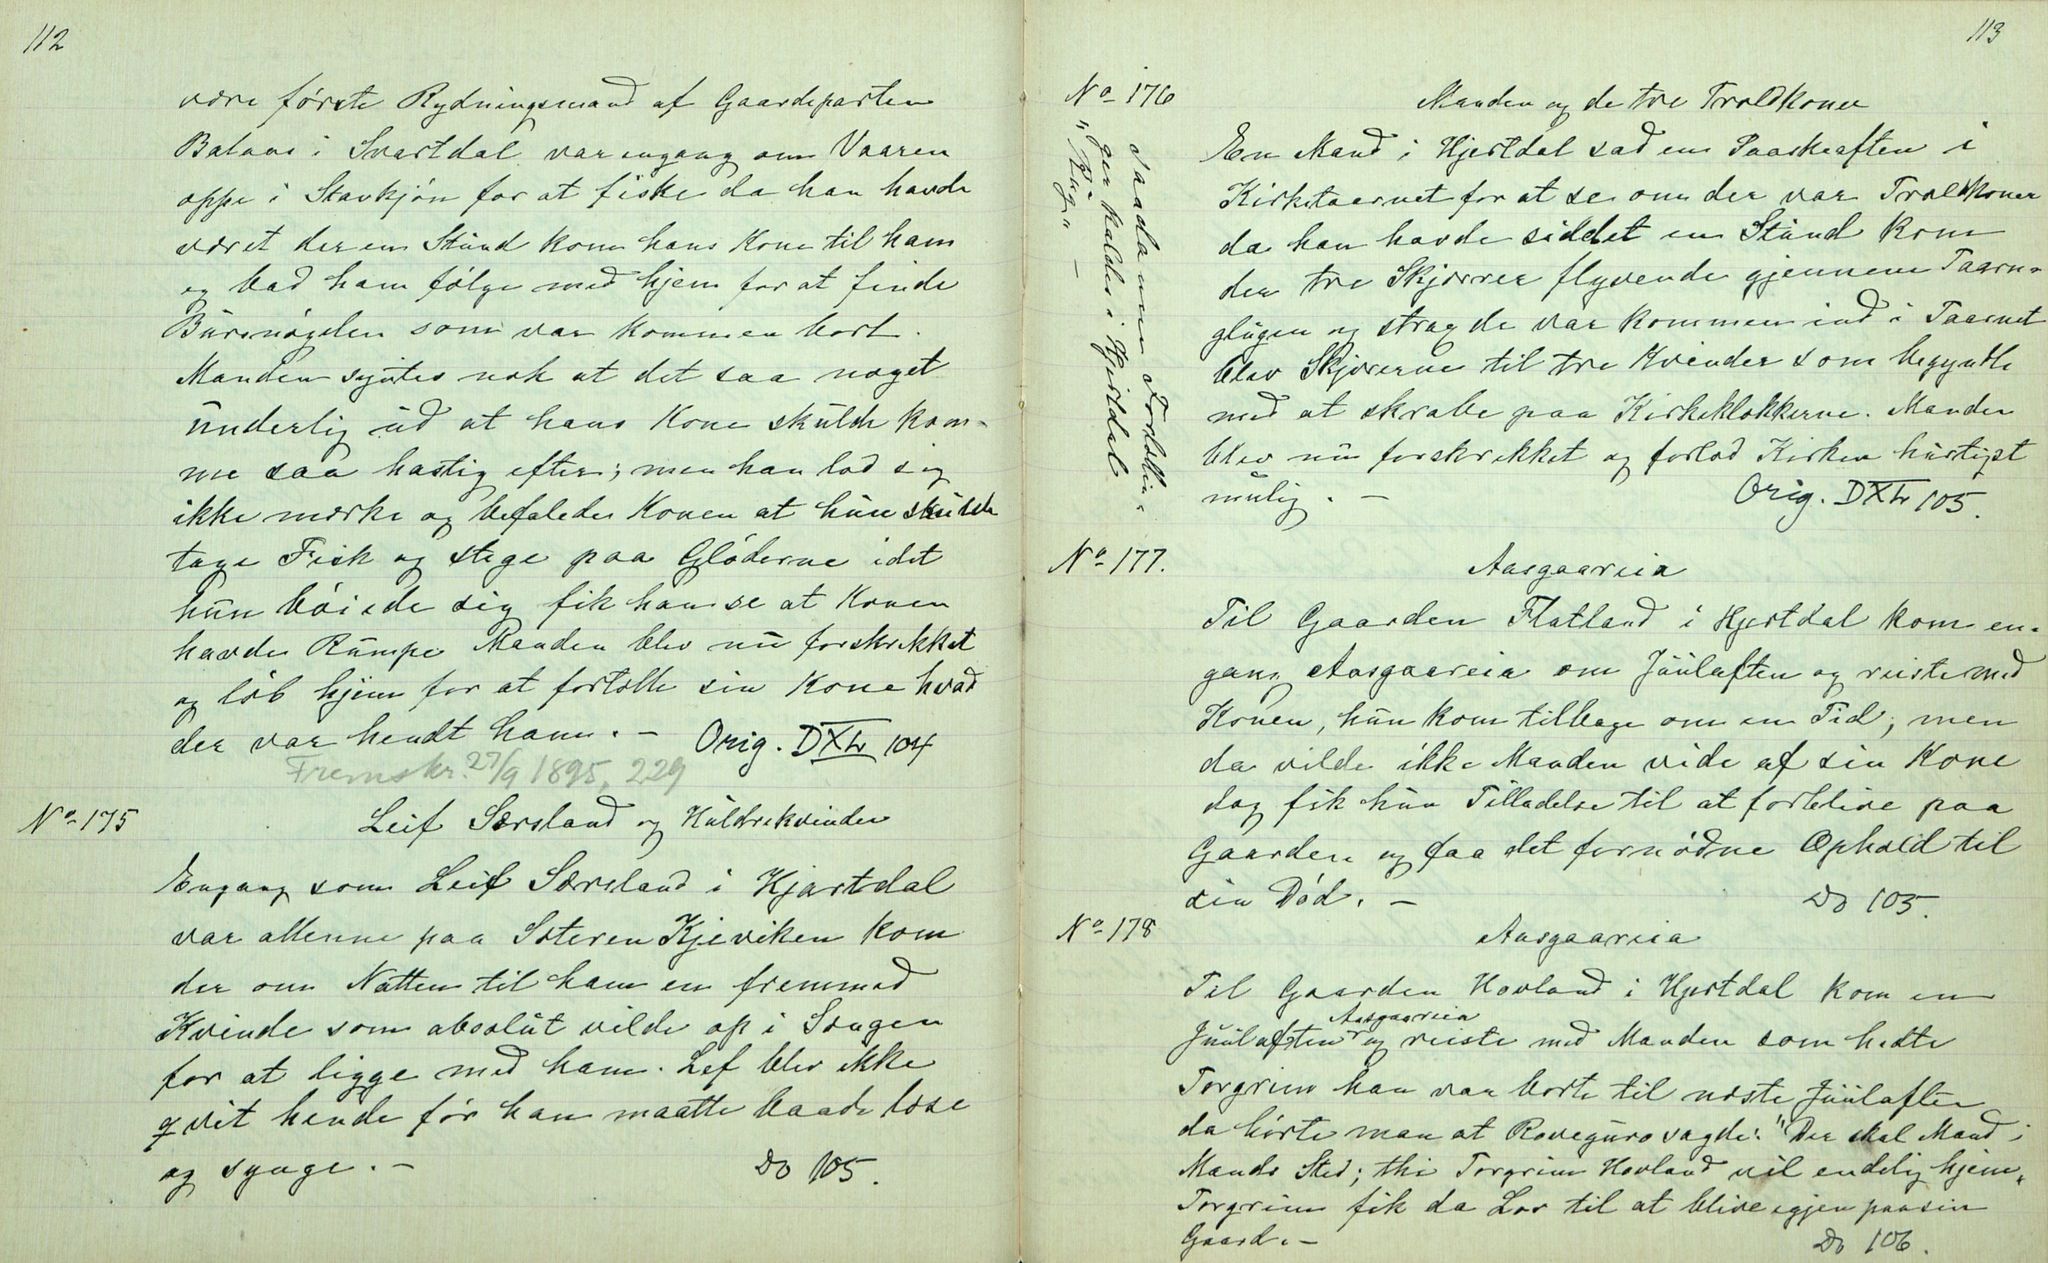 112
være første Rydningsmand af Gaardeparten
Bataas i Svartdal var engang om Vaaren
oppe i Stavkjøn for at fiske da han havde
været der en Stund kom hans Kone til ham
og bad ham følge med hjem for at finde
Bursnøgelen som var kommen bort.
Manden syntes nok at det saa noget
underlig ud at hans Kone skulde kom-
me saa hastig efter; men han lod sig
ikke mærke og befalede Konen at hun skulde
tage Fisk og stege paa Gløderne idet
hun bøiede sig fik han se at Konen
havde Rumpe Manden blev nu forskrekket
og løb hjem for at fortælle sin Kone hvad
der var hendt ham. - Orig. DXL 104
Fremskr. 27/9 1895, 229
No 175 Leif Sørsland og Huldrekvinden
Engang som Leif Sørsland i Hjartdal
var allenne paa Sæteren Kjeviken kom
der om Natten til ham en fremmed
Kvinde som absolut vilde op i Sengen
for at ligge med ham. Lef blev ikke
qvit hende før han maatte baade læse
og synge. - Do 105.
113
No 176 Manden og de tre Troldkoner
En Mand i Hjertdal sad en Paaskeaften i
Kirketaarnet for at se om der var Troldkoner
da han havde siddet en Stund kom
der tre Skjører flyvende gjennem Taarn-
glugen og strax de var kommen ind i Taarnet
blev Skjørerne til tre Kvinder som begyndte
med at skrabe paa Kirkeklokkerne. Manden
blev nu forskrekket og forlod Kirken hurtigst
mulig. - Orig. DXL 105.
saadanne Fortellin-
ger kaldes i Hjertdal
No 177. Aasgaareia
Til Gaarden Flatland i Hjertdal kom en-
gang Aasgaareia om Juulaften og reiste med
Konen, hun kom tilbage om en Tid, men
da vilde ikke Manden vide af sin Kone
dog fik hun Tilladelse til at forblive paa
Gaarden og faa det fornødne Ophold til
sin Død. - Do 105.
No 178 Aasgaareia
Til Gaarden Hovland i Hjertdal kom en
Aasgaareia
Juulaften og reiste med Manden som hedte
Torgrim han var borte til næste Juulaften
da hørte man at Roveguro sagde: "Der skal Mand i
Mands Sted; thi Torgrim Hovland vil endelig hjem"
Torgrim fik da Lov til at blive igjen paa sin
Gaard. - Do 106.